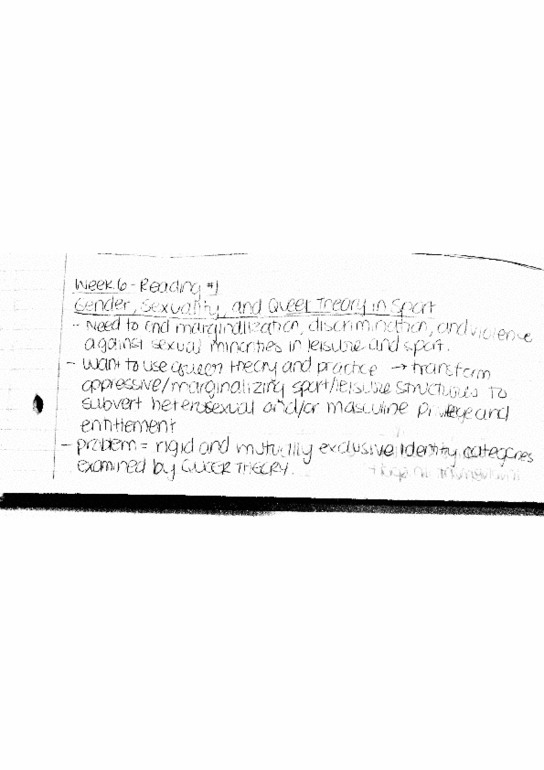 Week 6 - Reading #1
Gender, Sexuality, and Queer Theory in Sport
- Need to end marginalization, discrimination, and violence
against sexual minorities in leisure and sport.
- want to use queer theory and practice → transform
oppressive/marginalizing sport/leisure structures to
subvert heterosexual and/or masculine privilege and
entitlement
- problem = rigid and mutually exclusive identity categories
examined by QUEER THEORY.